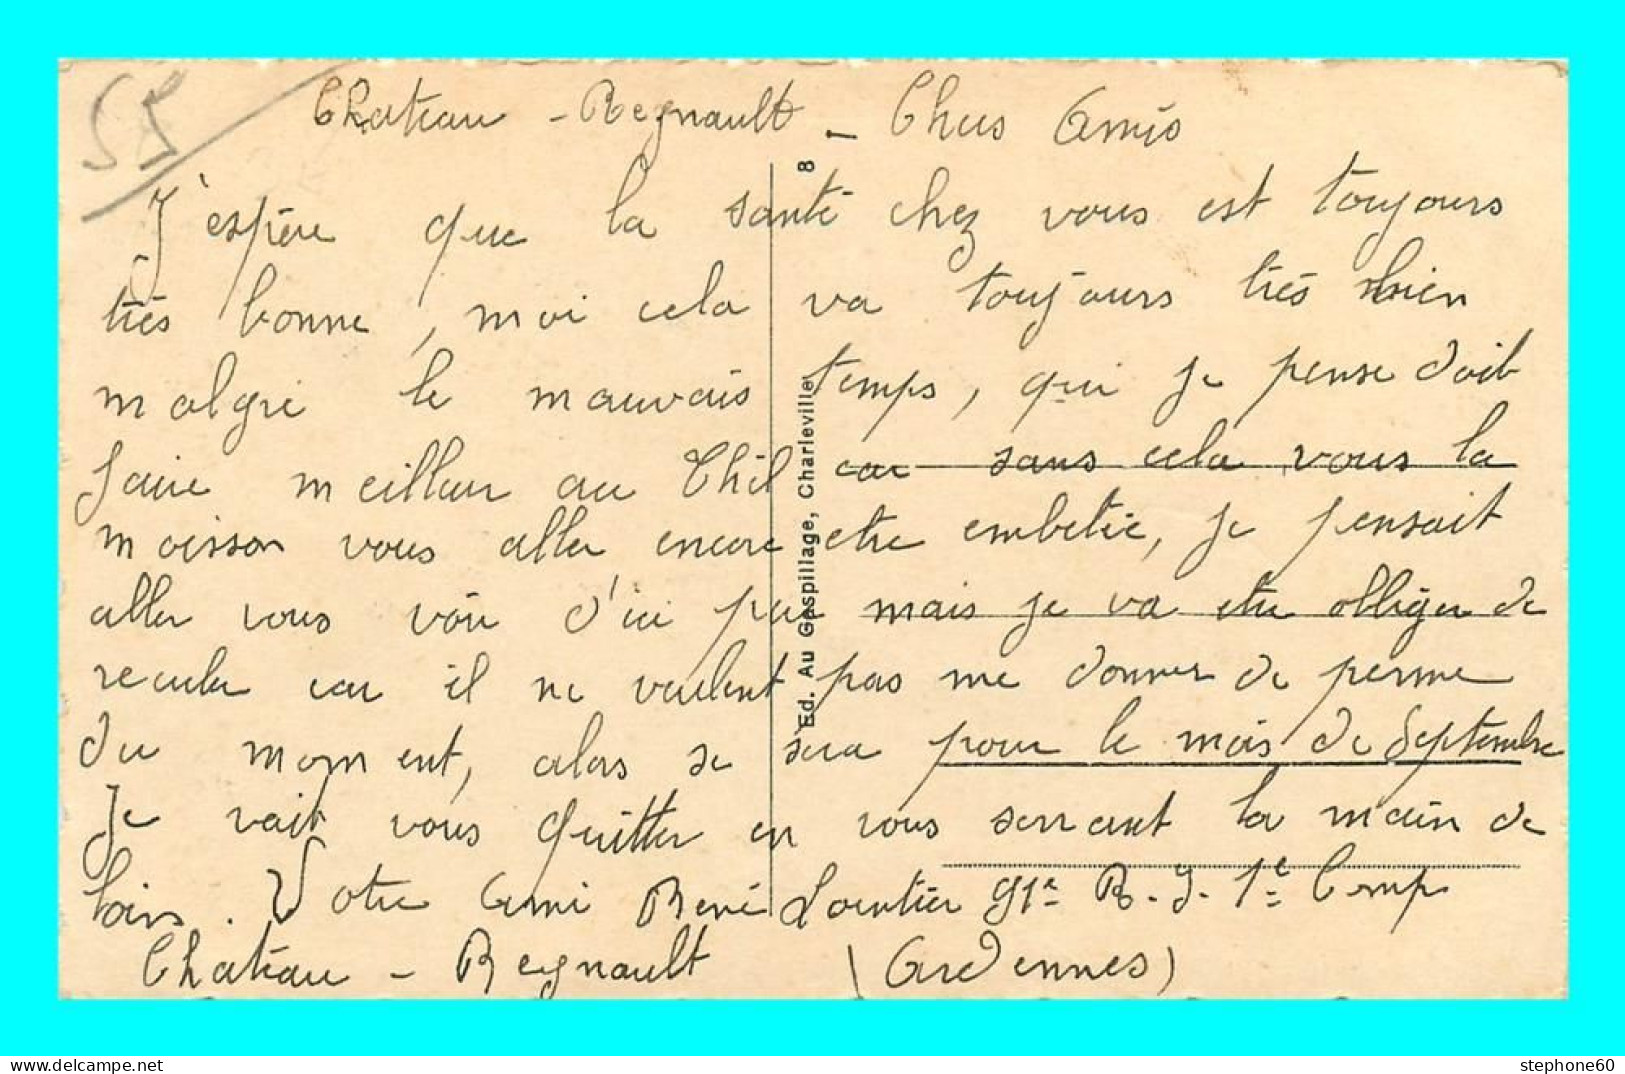 55
Chateau - Regnault - Chers Amis
J'espère que la santé chez vous est toujours
très bonne, moi cela va toujours très bien
malgré le mauvais temps, qui je pense doit
faire meilleur au Thil car sans cela vous la
moisson vous aller encore etre embetée, je pensait
aller vous voir d'ici peu mais je va etre obliger de
reculer car il ne veulent pas me donner de perme
du moment, alors se sera pour le mois de Septembre
Je vait vous quitter en vous serrant la main de
loin. Votre Ami René 91e R. I. 1e Comp
Chateau - Regnault (Ardennes)
Ed. Au Gaspillage, Charleville 8
stephone60